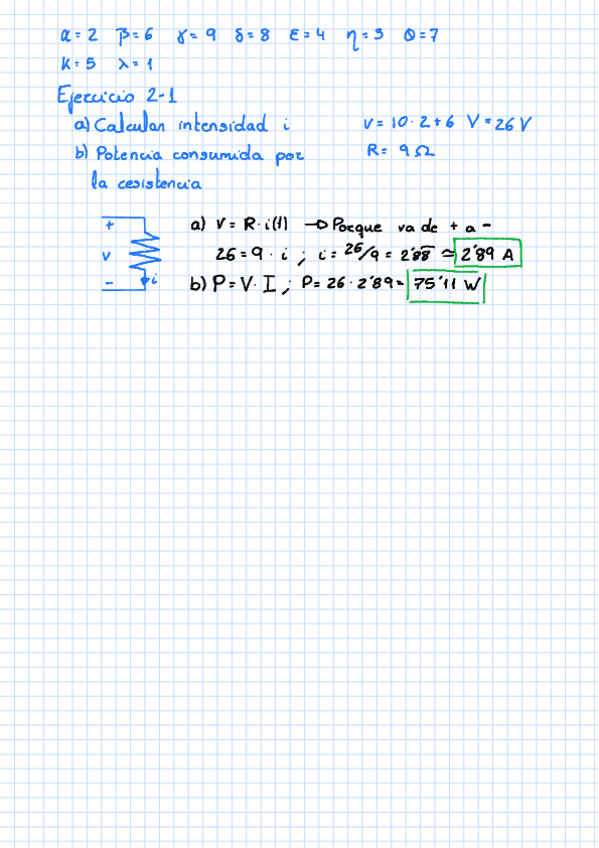 α = 2 β = 6 γ = 9 δ = 8 ε = 4 η = 3 θ = 7
k = 5 λ = 1
Ejercicio 2-1
a) Calcular intensidad i
b) Potencia consumida por
la resistencia
V = 10 · 2 + 6 V = 26 V
R = 9 Ω
+
v
-
i
a) V = R · i(1) → Porque va de + a -
26 = 9 · i ; i = 26/9 = 2'88 ≃ 2'89 A
b) P = V · I ; P = 26 · 2'89 = 75'11 W